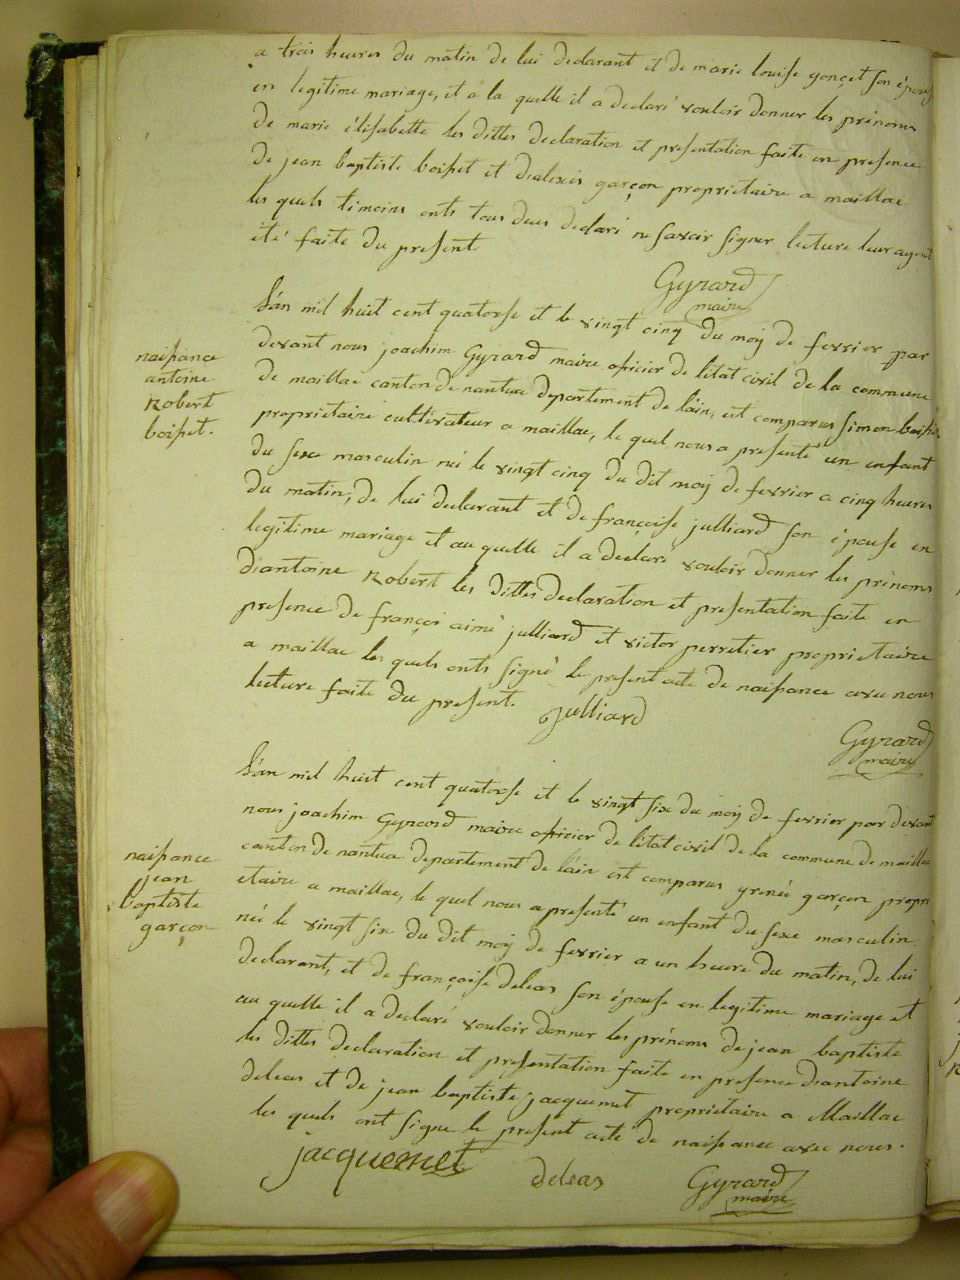 a trois heures du matin de lui declarant et de marie louise gonçet son épouse
en legitime mariage, et a la quelle il a declaré vouloir donner les prénoms
de marie élisabette les dittes declaration et presentation faite en presence
de jean baptiste boisset et d'alexis garçon proprietaire a maillac
les quels temoins onts tous deux declaré ne savoir signer lecture leur ayant
été faite du present
Gyrard
maire
naissance
antoine
Robert
boisset.
L'an mil huit cent quatorse et le vingt cinq du moij de fevrier par
devant nous joachim Gyrard maire oficier de l'etat civil de la commune
de maillac canton de nantua departement de l'ain, est comparus simon boisset
proprietaire cultivateur a maillac, le quel nous a presenté un enfant
du sexe masculin né le vingt cinq du dit moij de fevrier a cinq heures
du matin, de lui declarant et de françoise julliard son épouse en
legitime mariage et au quelle il a declaré vouloir donner les prénoms
d'antoine Robert les dittes declaration et presentation faite en
presence de françoi aimé julliard et victor perretier proprietaire
a maillac les quels onts signé le present acte de naissance avec nous
lecture faite du present.
Julliard
Gyrard
maire
naissance
jean
baptiste
garçon
L'an mil huit cent quatorse et le vingt six du moij de fevrier par devant
nous joachim Gyrard maire oficier de l'etat civil de la commune de maillac
canton de nantua departement de l'ain est comparus grenée garçon propri
etaire a maillac, le quel nous a presenté un enfant du sexe masculin
né le vingt six du dit moij de fevrier a un heure du matin, de lui
declarant, et de françoise deleas son épouse en legitime mariage et
au quelle il a declaré vouloir donner les prénoms de jean baptiste
les dittes declaration et presentation faite en presence d'antoine
deleas et de jean baptiste jacquemet proprietaire a Maillac
les quels ont signe le present acte de naissance avec nous.
jacquemet
deleas
Gyrard
maire